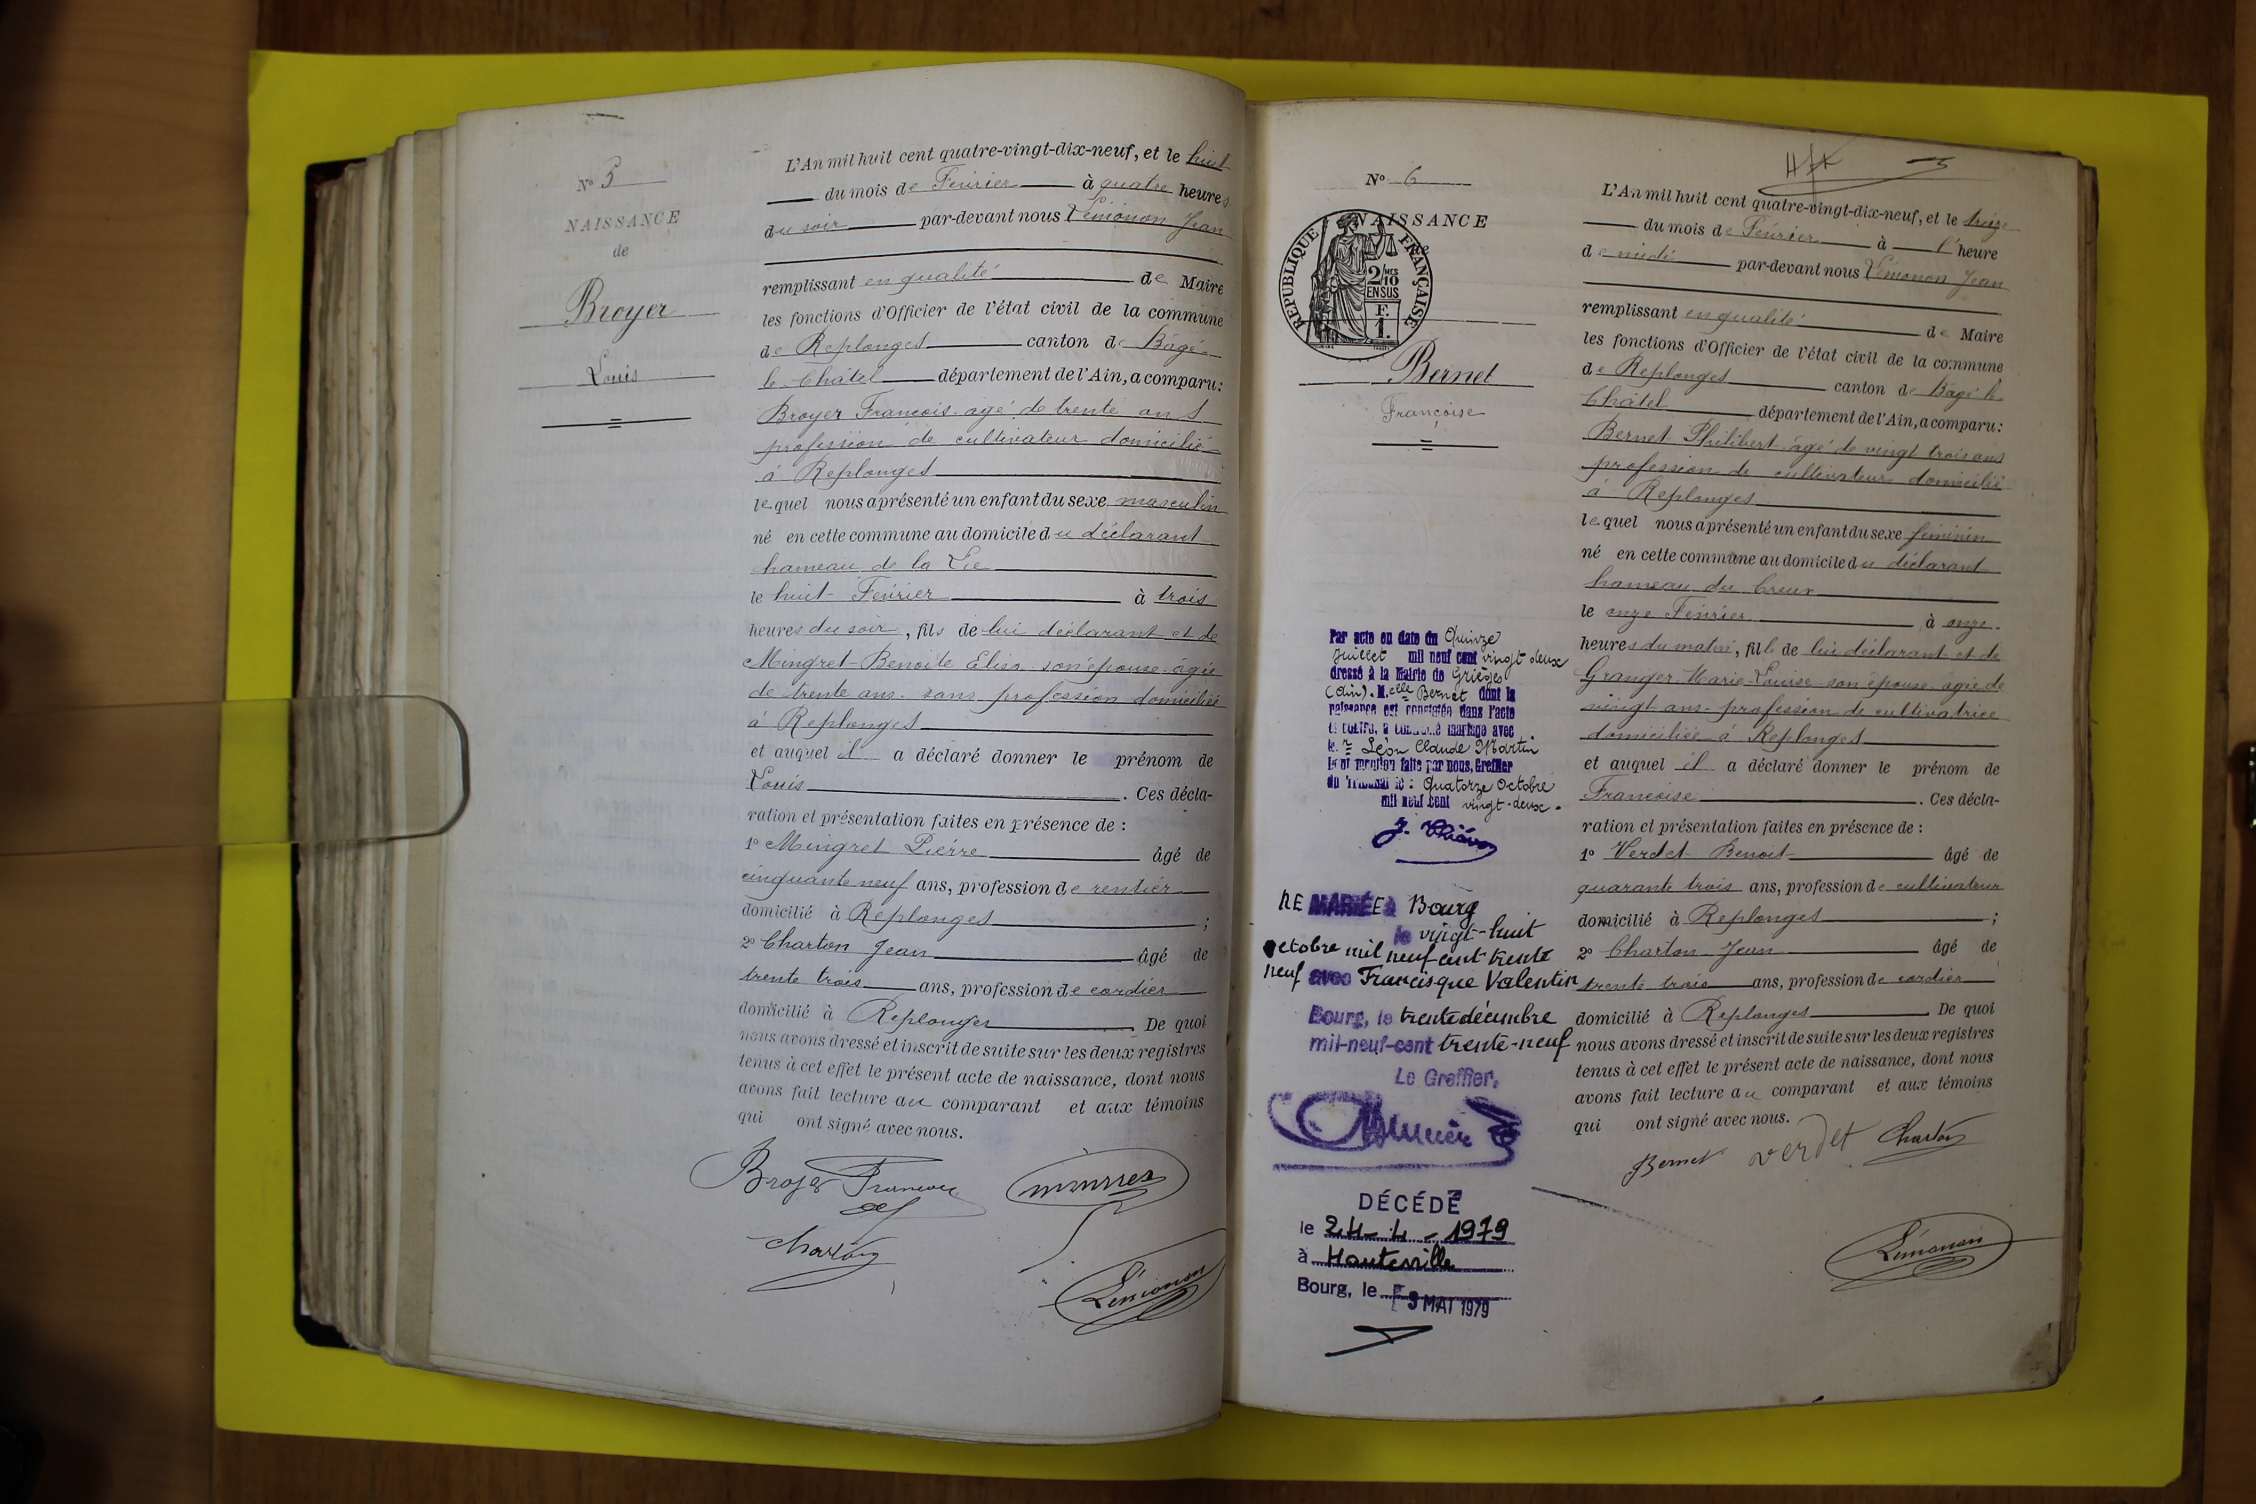 N° 5
NAISSANCE
de
Broyer
Louis
L'An mil huit cent quatre-vingt-dix-neuf, et le huit
du mois de Février à quatre heures
du soir par-devant nous Lémonon Jean
remplissant en qualité de Maire
les fonctions d'Officier de l'état civil de la commune
de Replonges canton de Bâgé-
le-Châtel département de l'Ain, a comparu:
Broyer François âgé de trente ans
profession de cultivateur domicilié
à Replonges
lequel nous a présenté un enfant du sexe masculin
né en cette commune au domicile du déclarant
hameau de la
le huit Février à trois
heures du soir, fils de lui déclarant et de
Mingret Benoite Elisa son épouse âgée
de trente ans sans profession domiciliée
à Replonges
et auquel il a déclaré donner le prénom de
Louis. Ces décla-
ration et présentation faites en présence de :
1° Mingret Pierre âgé de
cinquante neuf ans, profession de rentier
domicilié à Replonges ;
2° Charton Jean âgé de
trente trois ans, profession de cordier
domicilié à Replonges. De quoi
nous avons dressé et inscrit de suite sur les deux registres
tenus à cet effet le présent acte de naissance, dont nous
avons fait lecture au comparant et aux témoins
qui ont signé avec nous.
Broyer François
Charton
Lémonon
N° 6
NAISSANCE
RÉPUBLIQUE FRANÇAISE
2/10
EN SUS
F.
1.
Bernet
Françoise
Par acte en date du Quinze
Juillet mil neuf cent vingt deux
dressé à la Mairie de Grièges
(Ain). Melle Bernet dont la
naissance est constatée dans l'acte
ci contre, a contracté mariage avec
le Sr Léon Claude Martin
Dont mention faite par nous, Greffier
du Tribunal le : Quatorze Octobre
mil neuf cent vingt-deux.
REMARIÉE à Bourg
le vingt-huit
octobre mil neuf cent trente
neuf avec Francisque Valentin
Bourg, le trente décembre
mil-neuf-cent trente-neuf
Le Greffier,
DÉCÉDÉE
le 24-4-1979
à Hauteville
Bourg, le - 9 MAI 1979
L'An mil huit cent quatre-vingt-dix-neuf, et le treize
du mois de Février à l'heure
de midi par-devant nous Lémonon Jean
remplissant en qualité de Maire
les fonctions d'Officier de l'état civil de la commune
de Replonges canton de Bâgé le
Châtel département de l'Ain, a comparu:
Bernet Philibert âgé de vingt trois ans
profession de cultivateur domicilié
à Replonges
lequel nous a présenté un enfant du sexe féminin
né en cette commune au domicile du déclarant
hameau du Creux
le onze Février à onze
heures du matin, fille de lui déclarant et de
Granger Marie-Louise son épouse âgée de
vingt ans profession de cultivatrice
domiciliée à Replonges
et auquel il a déclaré donner le prénom de
Françoise. Ces décla-
ration et présentation faites en présence de :
1° Verdet Benoit âgé de
quarante trois ans, profession de cultivateur
domicilié à Replonges ;
2° Charton Jean âgé de
trente trois ans, profession de cordier
domicilié à Replonges. De quoi
nous avons dressé et inscrit de suite sur les deux registres
tenus à cet effet le présent acte de naissance, dont nous
avons fait lecture au comparant et aux témoins
qui ont signé avec nous.
Bernet Verdet Charton
Lémonon